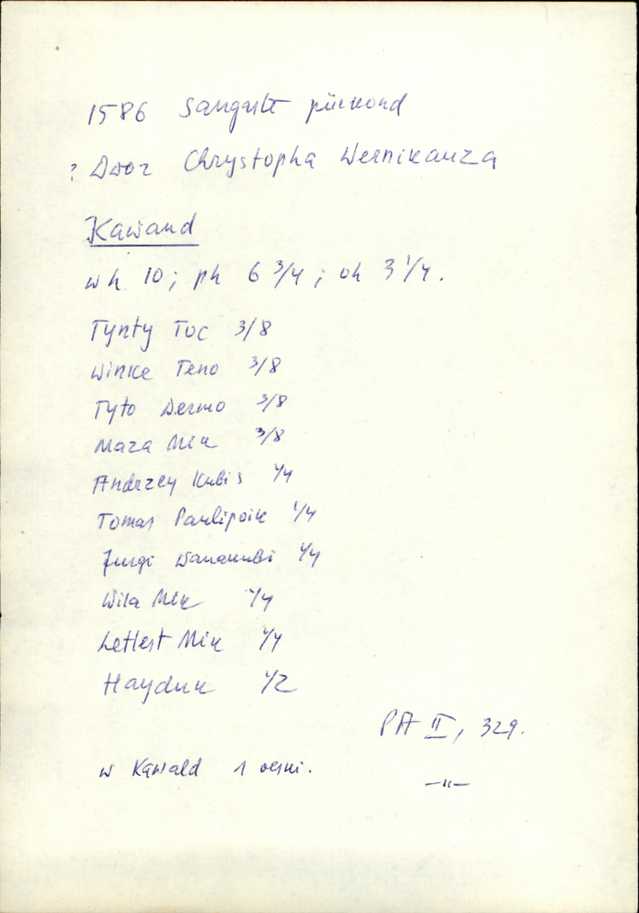 1586 Sangaste piirkond
? Dwor Chrystopha Wernikauza
Kawand
wh 10; ph 6 3/4; oh 3 1/4.
Tynty Toc 3/8
Winke Teno 3/8
Tyto Dermo 3/8
Maza Mek 3/8
Andrzey Kubis 1/4
Tomas Paulipoik 1/4
Jurgi 1/4
Wila Mek 1/4
Letlest Mik 1/4
Hayduk 1/2
PA II, 329.
w Kawald 1
—"—